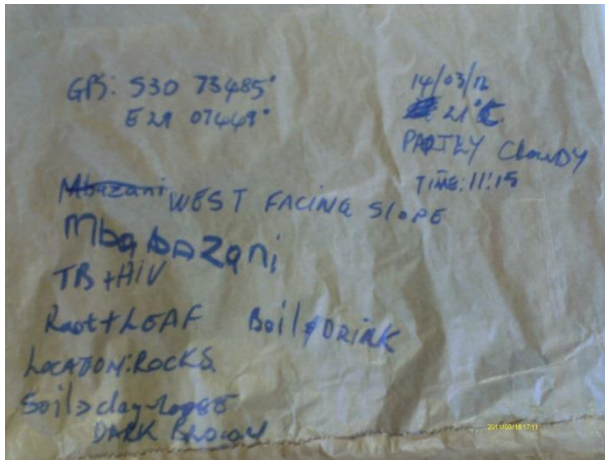 GPS: S30 73485°
E29 07449°
14/03/12
21°C
PARTLY ClouDY
TIME: 11:15
Mbazani WEST FACING SLOPE
Mbabazani
TB + HIV
Root + LEAF Boil & DRINK
LOCATION: ROCKS
Soil > clay-
DARK BROWN
2011/03/18 17:11